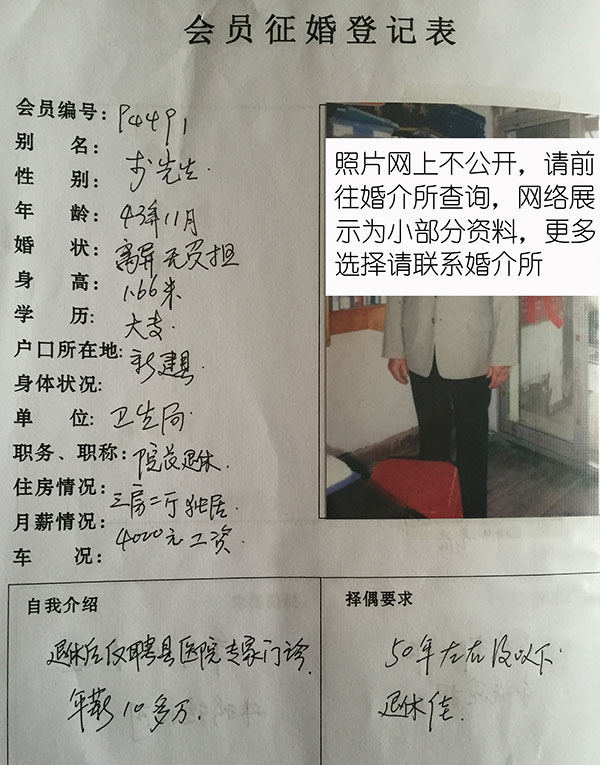 会员征婚登记表
会员编号：P4491
别 名：李先生.
性 别：
年 龄：43年11月
婚 状：离异 无负担
身 高：1.66米
学 历：大专.
户口所在地：新建县.
身体状况：
单 位：卫生局.
职务、职称：院长退休.
住房情况：三房二厅 独居.
月薪情况：4000元工资.
车 况：
照片网上不公开，请前
往婚介所查询，网络展
示为小部分资料，更多
选择请联系婚介所
自我介绍
退休后反聘县医院专家门诊.
年薪10多万.
择偶要求
50年左右及以下.
退休佳.